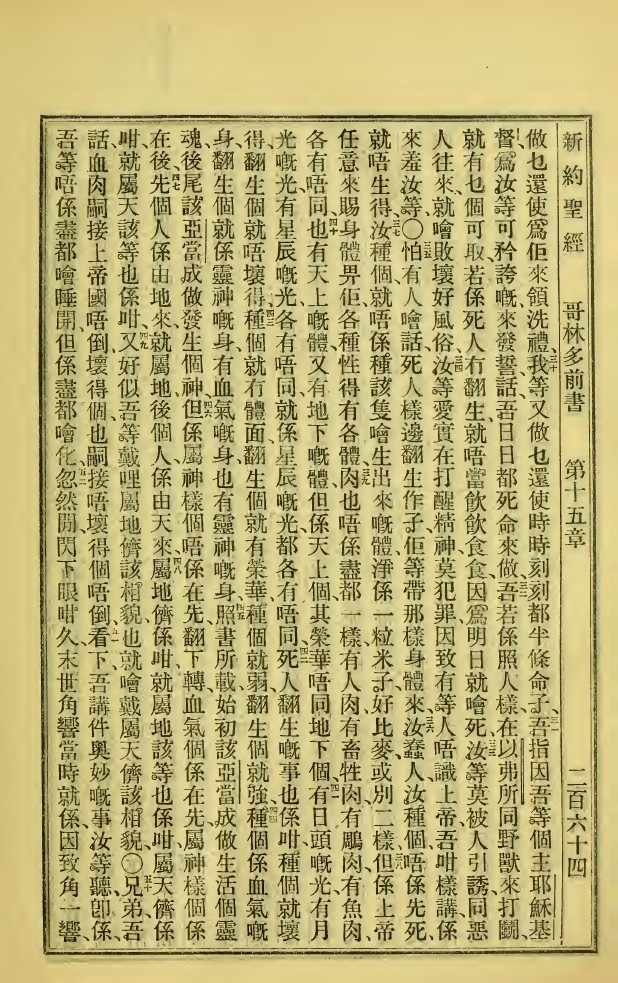 新約聖經 哥林多前書 第十五章 二百六十四
做乜還使爲佢來領洗禮、三十我等又做乜還使時時刻刻都半條命子、三一吾指因吾等個主耶穌基
督爲汝等可矜誇嘅來發誓話、吾日日都死命來做、三二吾若係照人樣在以弗所同野獸來打鬬、
就有乜個可取、若係死人冇翻生、就唔當飲飲食食、因爲明日就噲死、三三汝等莫被人引誘、同惡
人往來、就噲敗壞好風俗、三四汝等愛實在打醒精神莫犯罪、因致有等人唔識上帝、吾咁樣講係
來羞汝等〇三五怕有人噲話、死人樣邊翻生作子、佢等帶那樣身體來、三六汝蠢人、汝種個唔係先死、
就唔生得、三七汝種個、就唔係種該隻噲生出來嘅體、淨係一粒米子、好比麥或別二樣、三八但係上帝
任意來賜身體畀佢、各種性得有各體、三九肉也唔係盡都一樣、有人肉、有畜牲肉、有鵰肉、有魚肉、
各有唔同也、四十有天上嘅體、又有地下嘅體、但係天上個其榮華唔同地下個、四一有日頭嘅光、有月
光嘅光、有星辰嘅光、各有唔同、就係星辰嘅光、都各有唔同、四二死人翻生嘅事也係咁、種個就壞
得、翻生個就唔壞得、四三種個就冇體面、翻生個就有榮華、種個就弱、翻生個就強、四四種個係血氣嘅
身、翻生個就係靈神嘅身、有血氣嘅身、也有靈神嘅身、四五照書所載、始初該亞當成做生活個靈
魂、後尾該亞當成做發生個神、四六但係屬神樣個唔係在先、翻下轉血氣個係在先、屬神樣個係
在後、四七先個人係由地來、就屬地、後個人係由天來、四八屬地儕係咁、就屬地該等也係咁、屬天儕係
咁、就屬天該等也係咁、四九又好似吾等戴哩屬地儕該相貌、也就噲戴屬天儕該相貌〇五十兄弟、吾
話、血肉嗣接上帝國唔倒、壞得個也嗣接唔壞得個唔倒、五一看下、吾講件奧妙嘅事汝等聽、卽係、
吾等唔係盡都噲睡開、但係盡都噲化、五二忽然間、閃下眼咁久、末世角響當時就係、因致角一響、